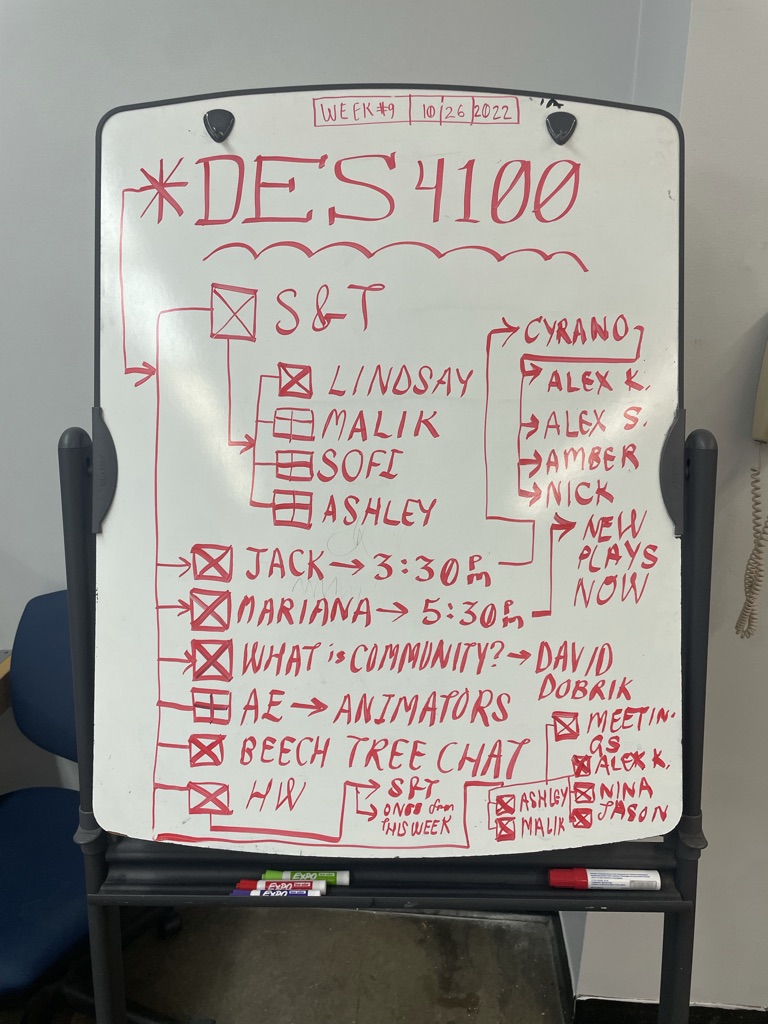 WEEK #9 10 26 2022
*DES 4100
S&T
LINDSAY
MALIK
SOFI
ASHLEY
CYRANO
ALEX K.
ALEX S.
AMBER
NICK
JACK → 3:30 PM
MARIANA → 5:30 PM
NEW
PLAYS
NOW
WHAT is COMMUNITY? → DAVID
DOBRIK
AE → ANIMATORS
BEECH TREE CHAT
HW
S&T
ONES from
THIS WEEK
MEETIN-
GS
ALEX K.
NINA
JASON
ASHLEY
MALIK
EXPO
EXPO
EXPO